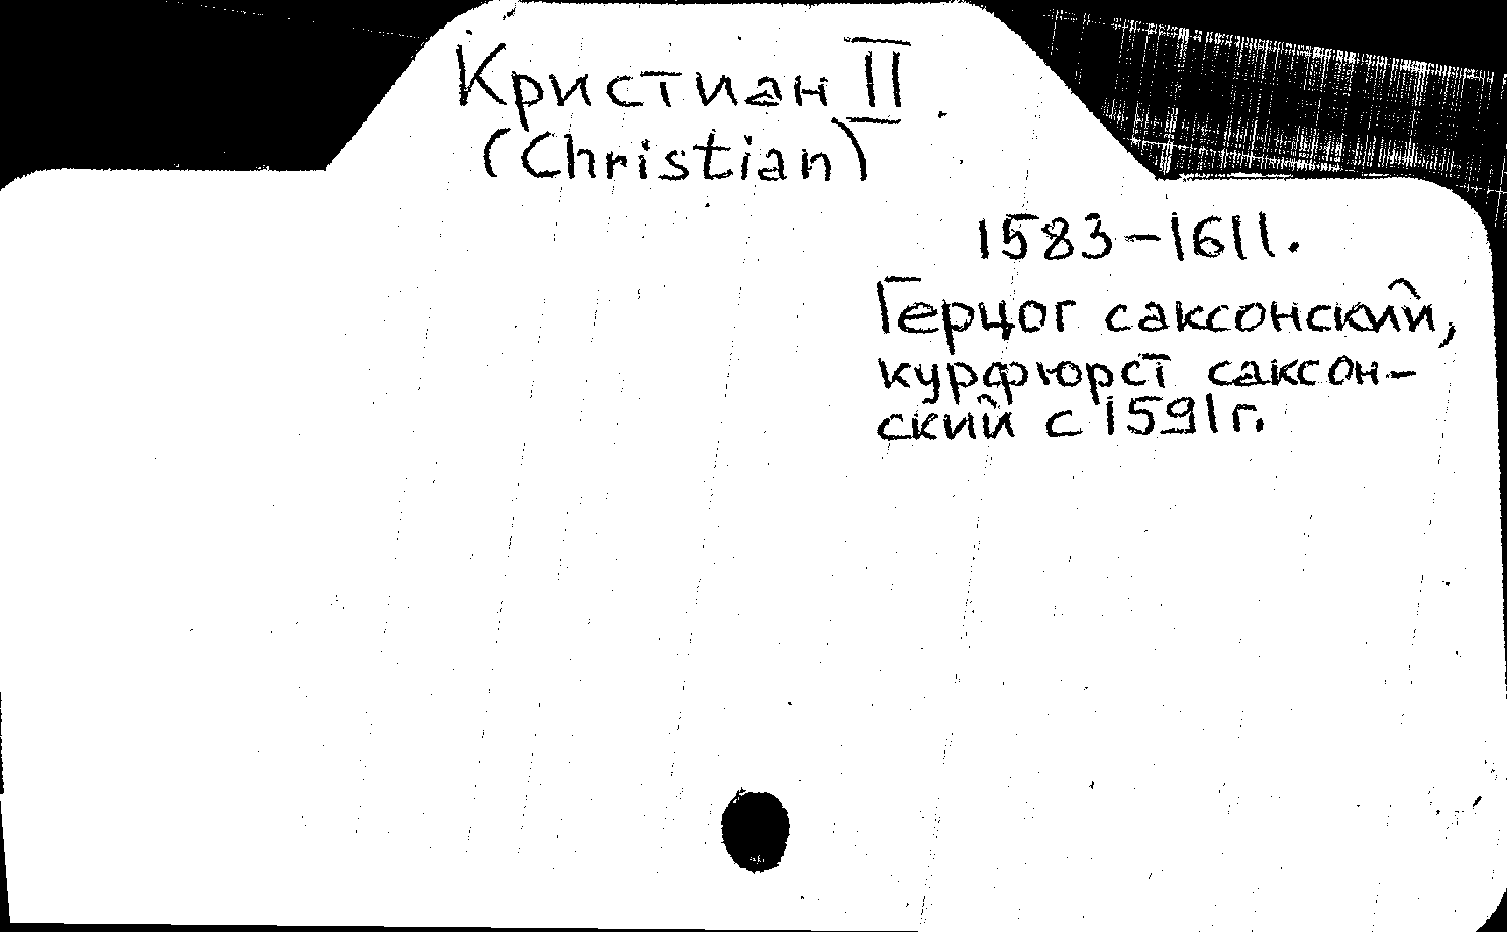 Кристиан II
(Christian)
1583-1611.
Герцог саксонский,
курфюрст саксон-
ский с 1591г.